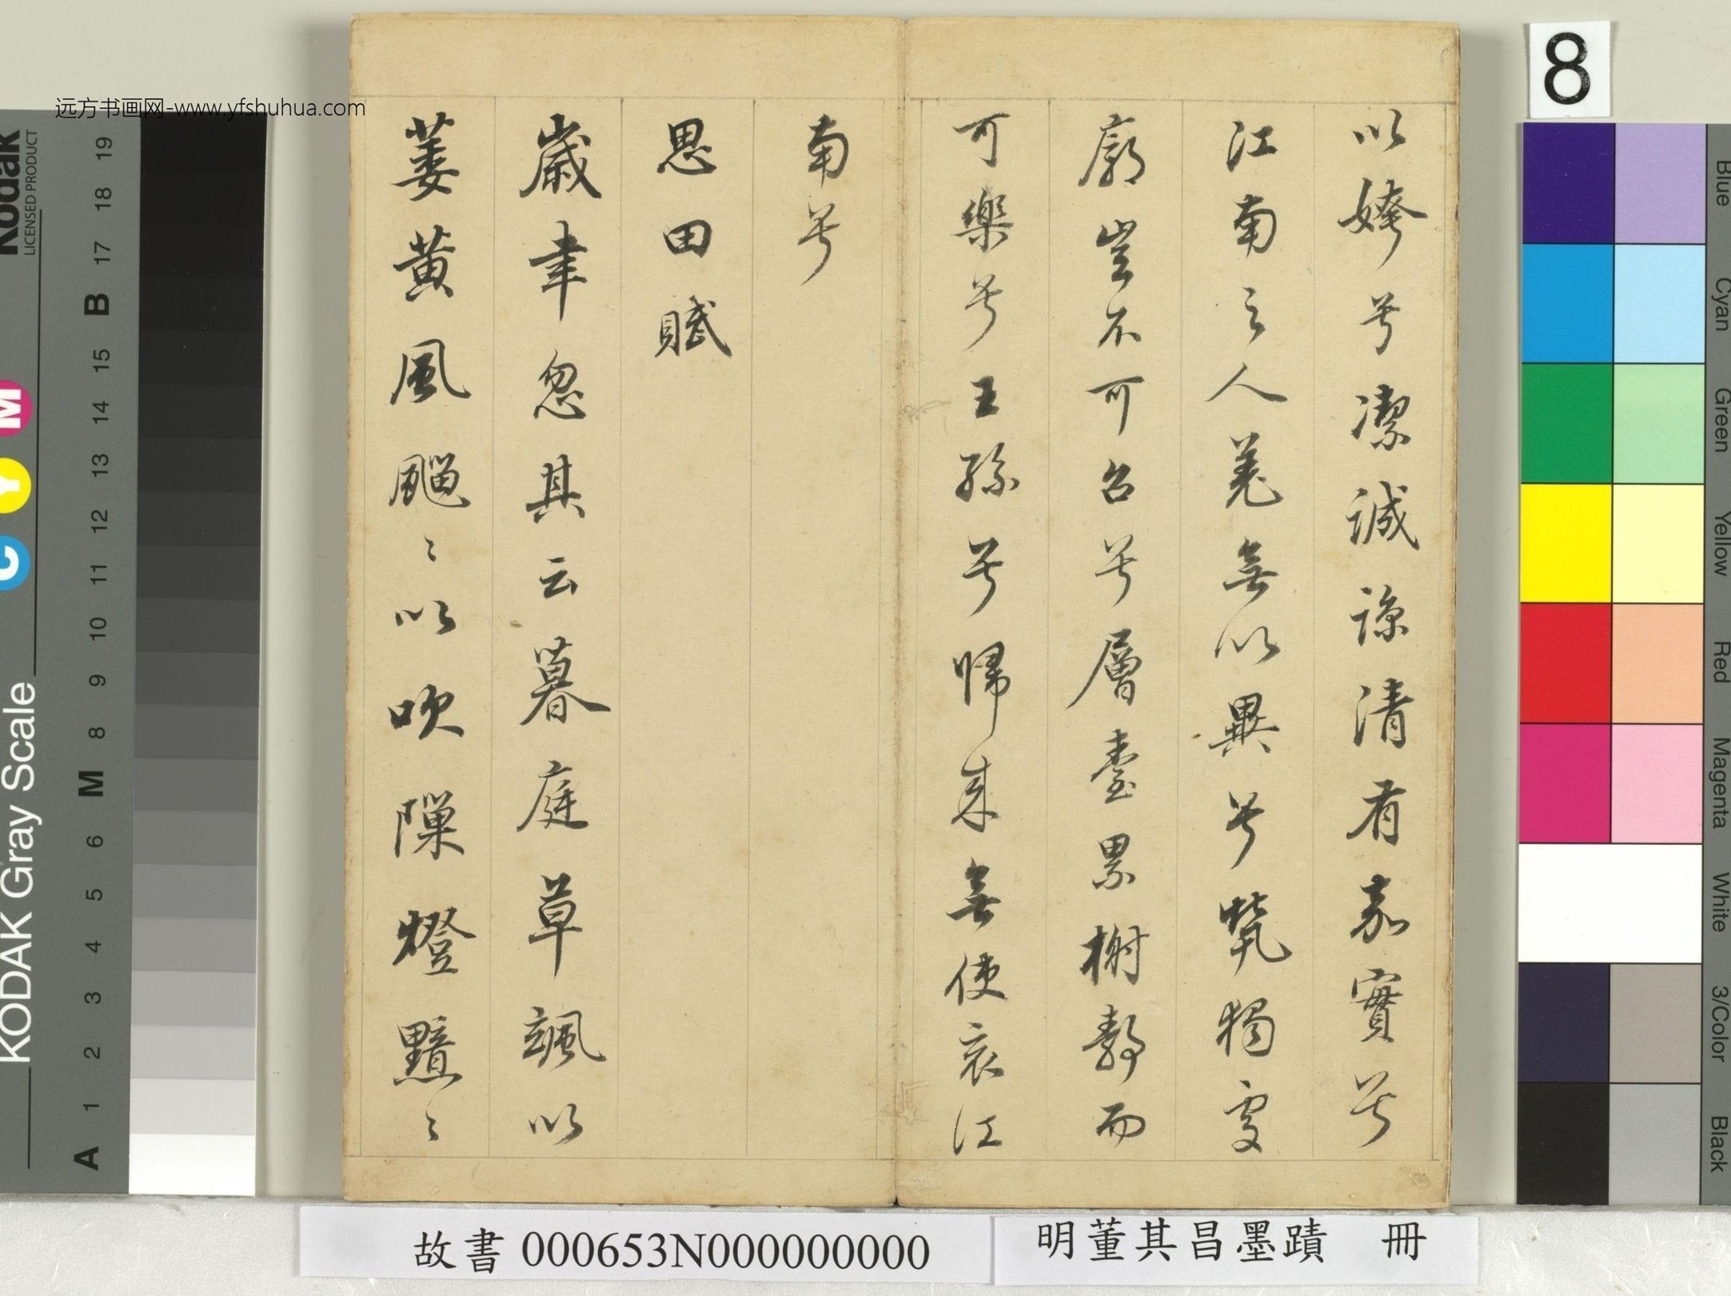 以姱兮潔誠諒清有嘉實兮
江南之人羌無以異兮煢獨處
廓豈不可召兮層臺累榭靜而
可樂兮王孫兮歸來無使哀江
南兮
思田賦
歲聿忽其云暮庭草颯以
萎黃風飀〻以吹隙燈黯〻
8
远方书画网-www.yfshuhua.com
Kodak
LICENSED PRODUCT
KODAK Gray Scale
C Y M
A 1 2 3 4 5 6 M 8 9 10 11 12 13 14 15 B 17 18 19
Blue
Cyan
Green
Yellow
Red
Magenta
White
3/Color
Black
故書 000653N000000000
明董其昌墨蹟 冊